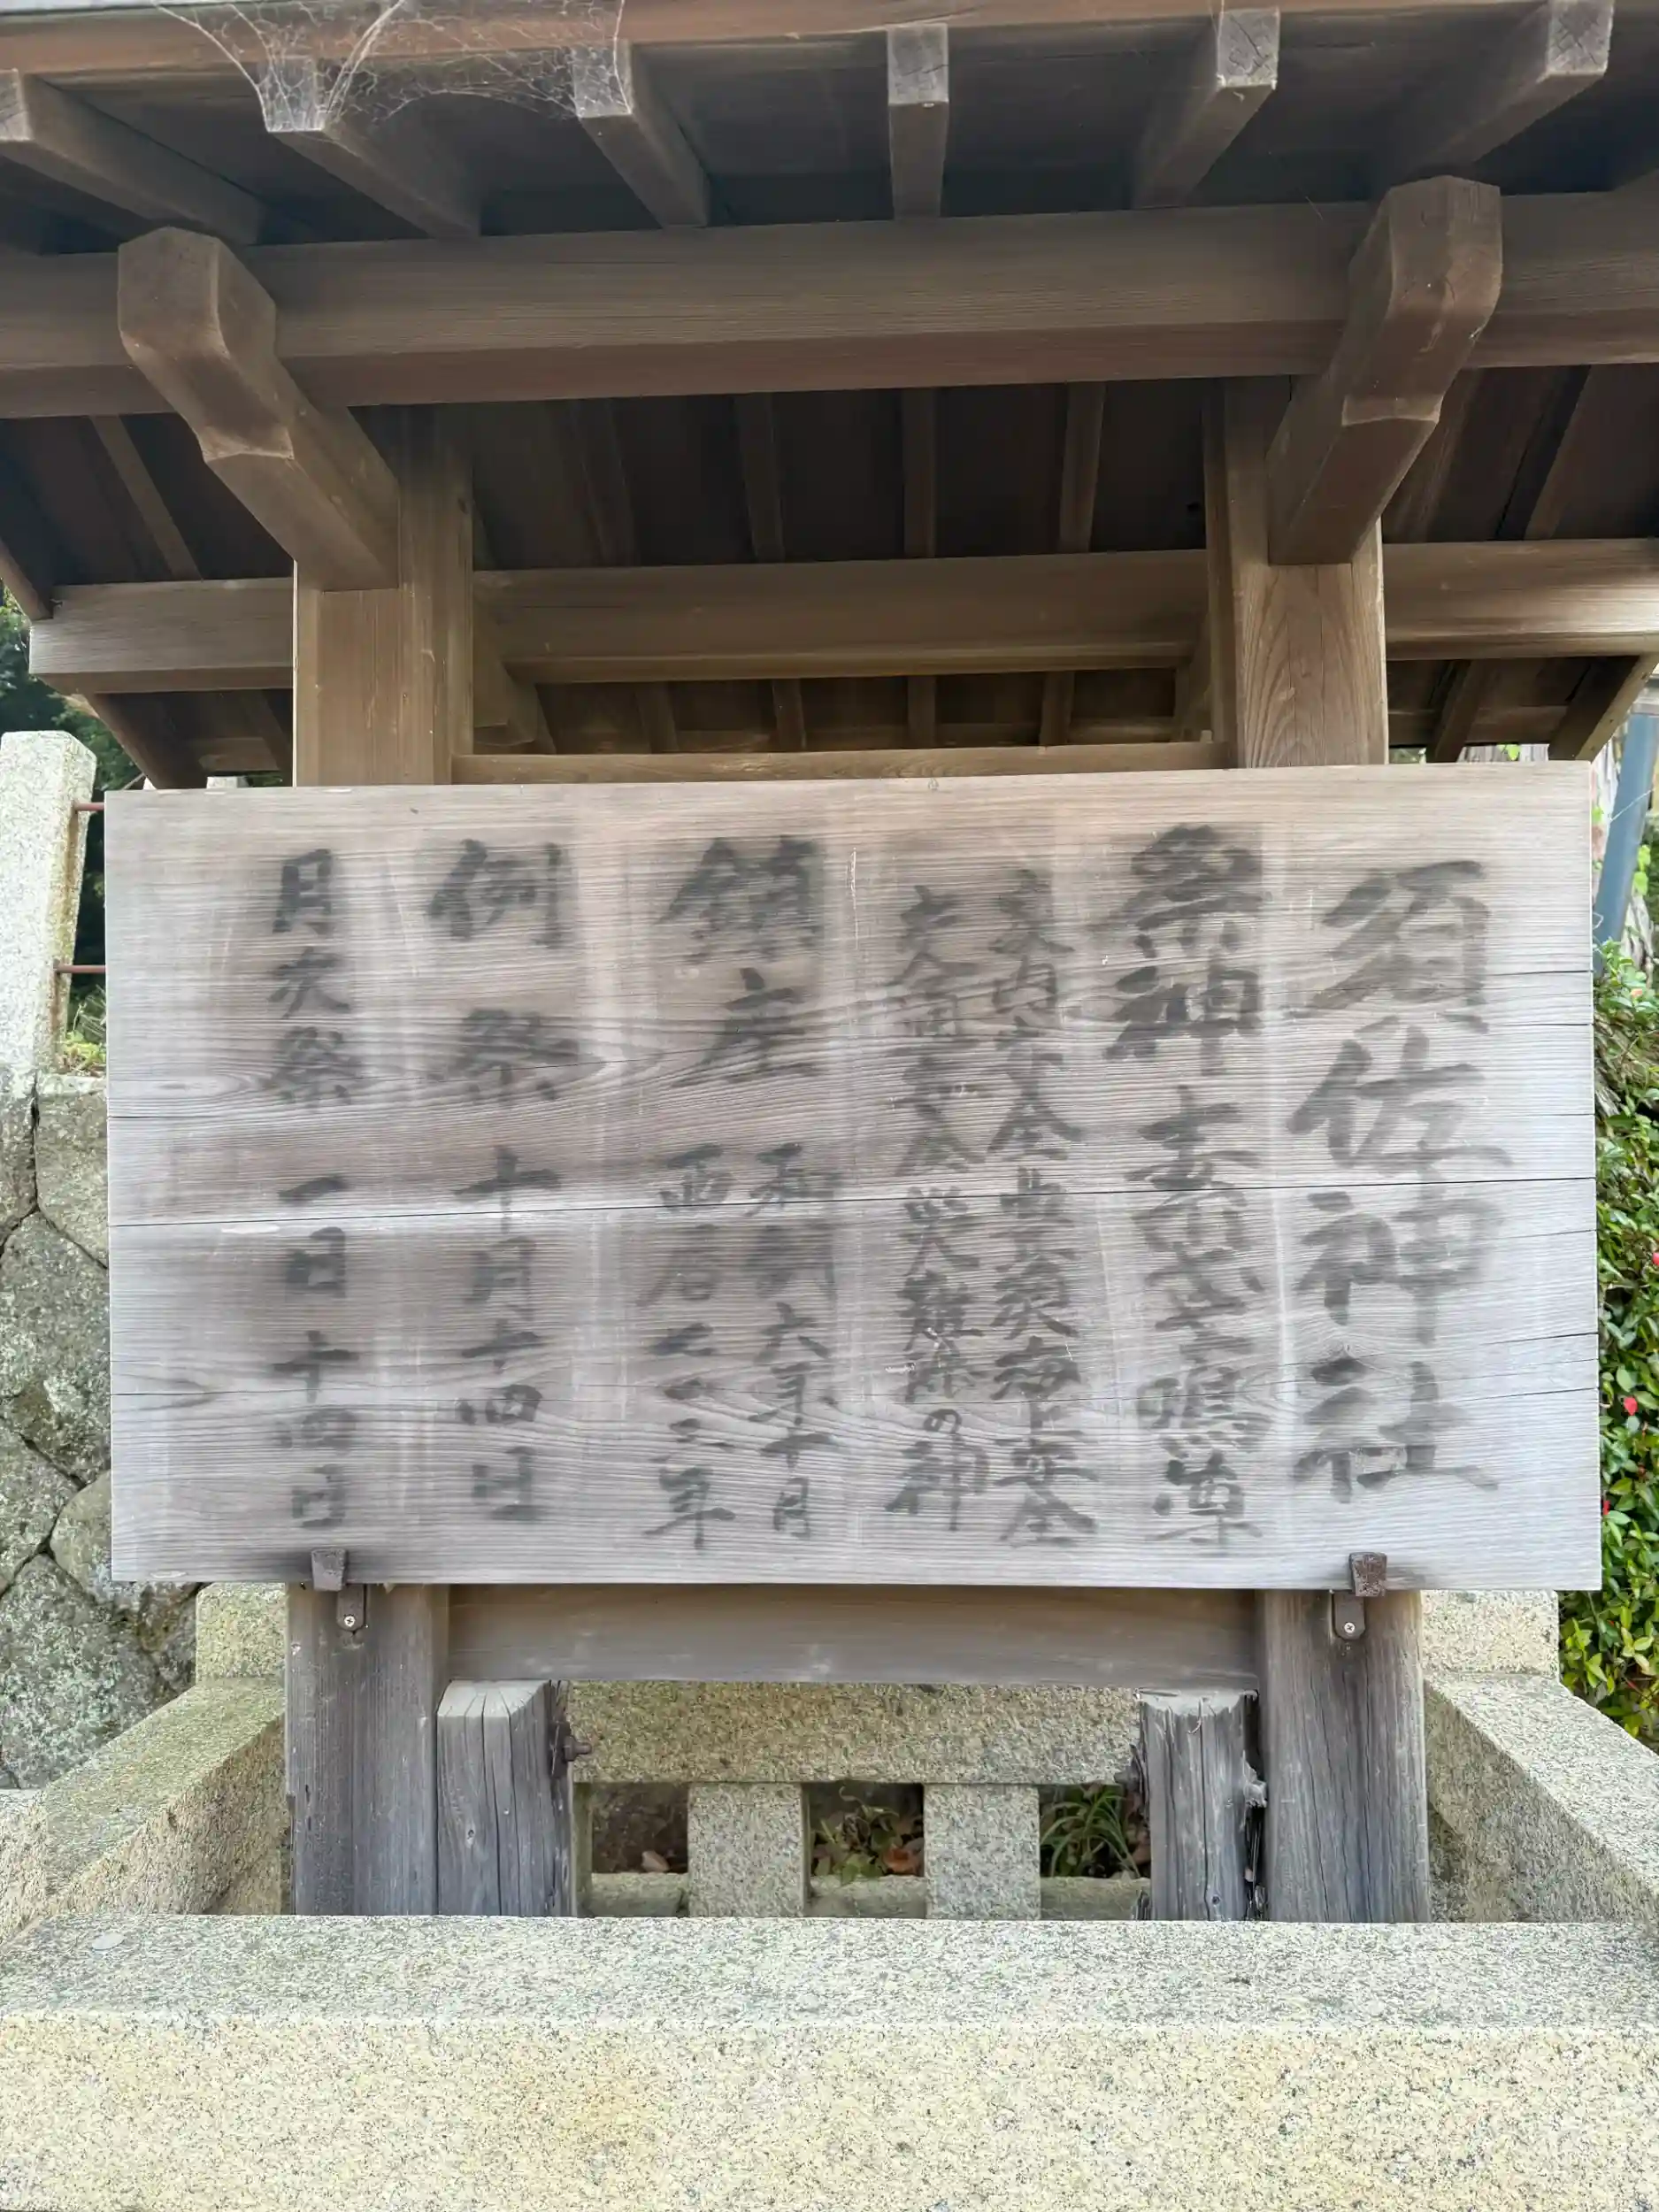 須佐神社
祭神 素盞嗚尊
家内安全 豊漁海上安全
交通安全 災難除の神
鎮座
和銅六年十月
西暦七一三年
例祭 十月十四日
月次祭 一日 十四日